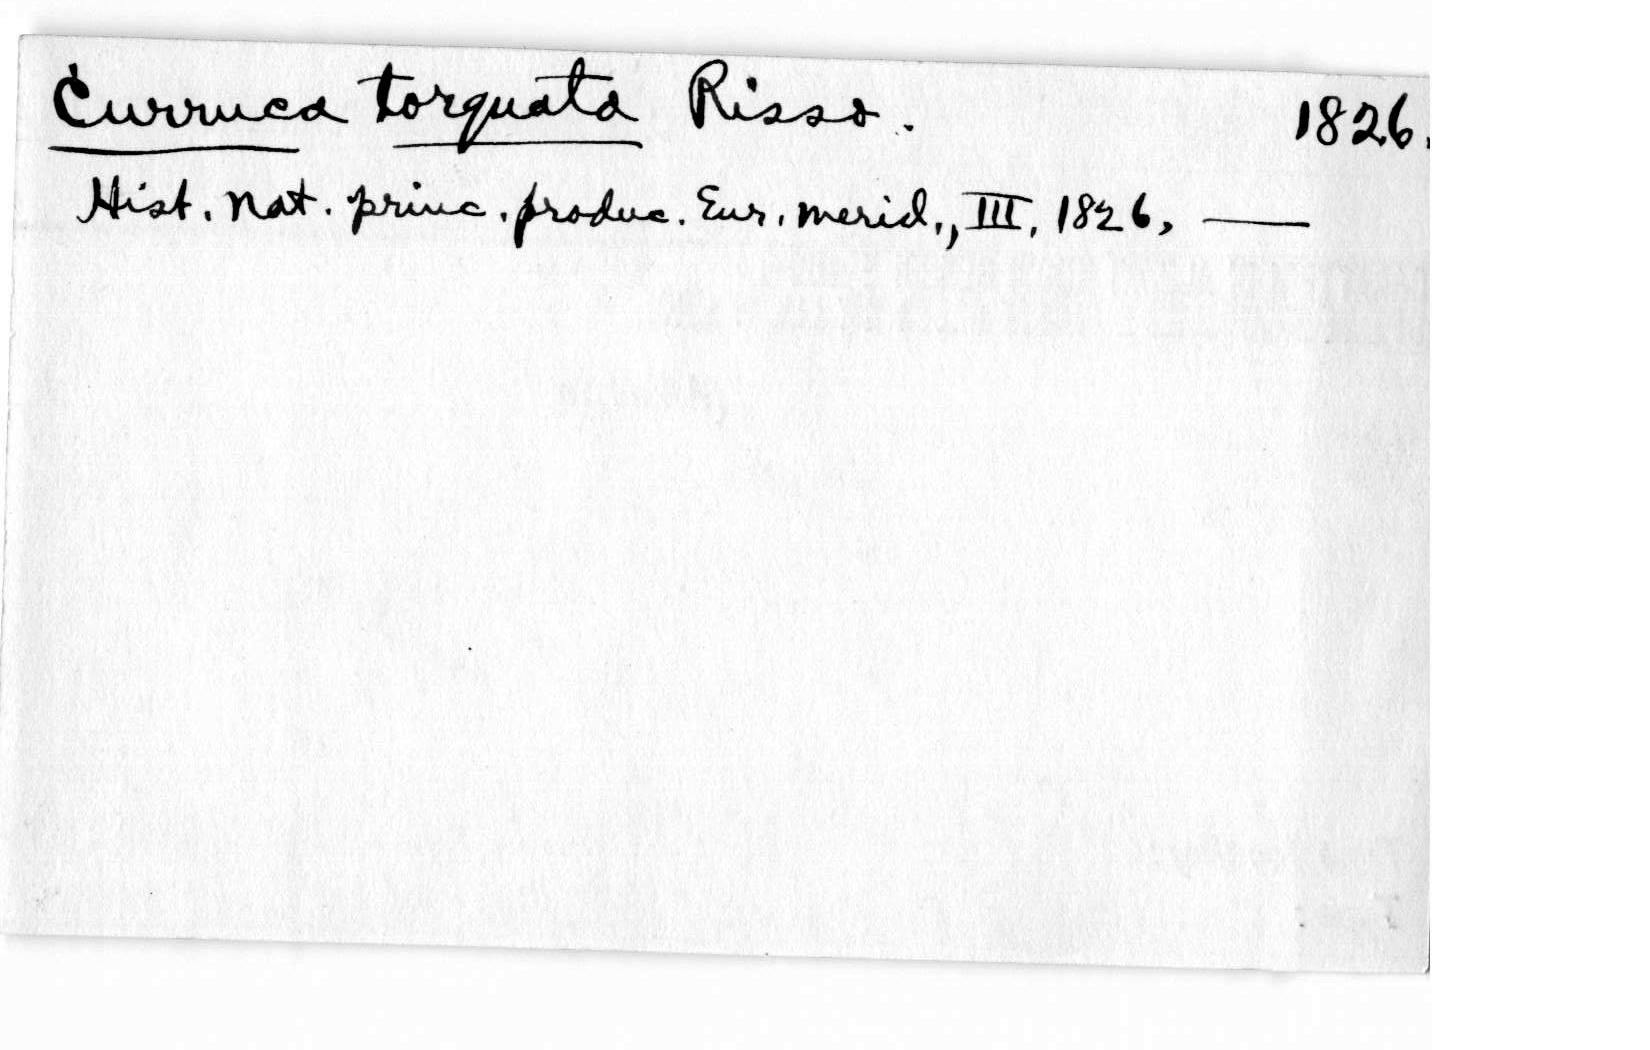 Curruca torquata Risso. 1826.
Hist. nat. princ. produc. Eur. merid., III, 1826, ——